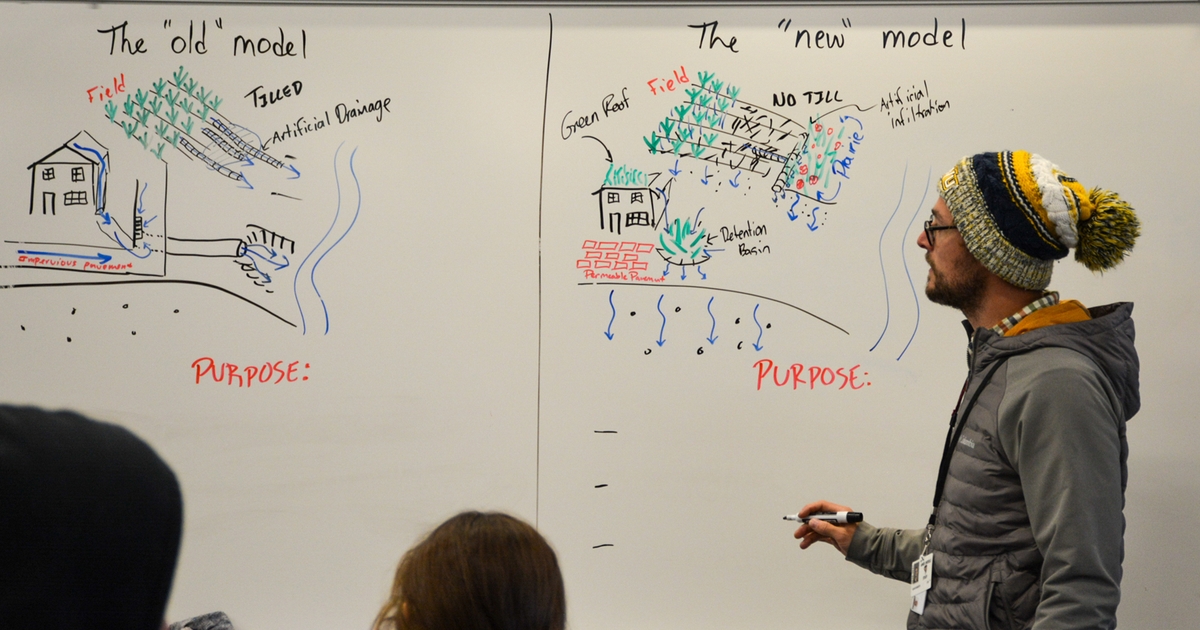 The "old" model
Field
TILLED
Artificial Drainage
impervious pavement
PURPOSE:
The "new" model
Field
Green Roof
NO TILL
Artificial
infiltration
Prairie
Detention
Basin
Permeable Pavement
PURPOSE:
Columbia